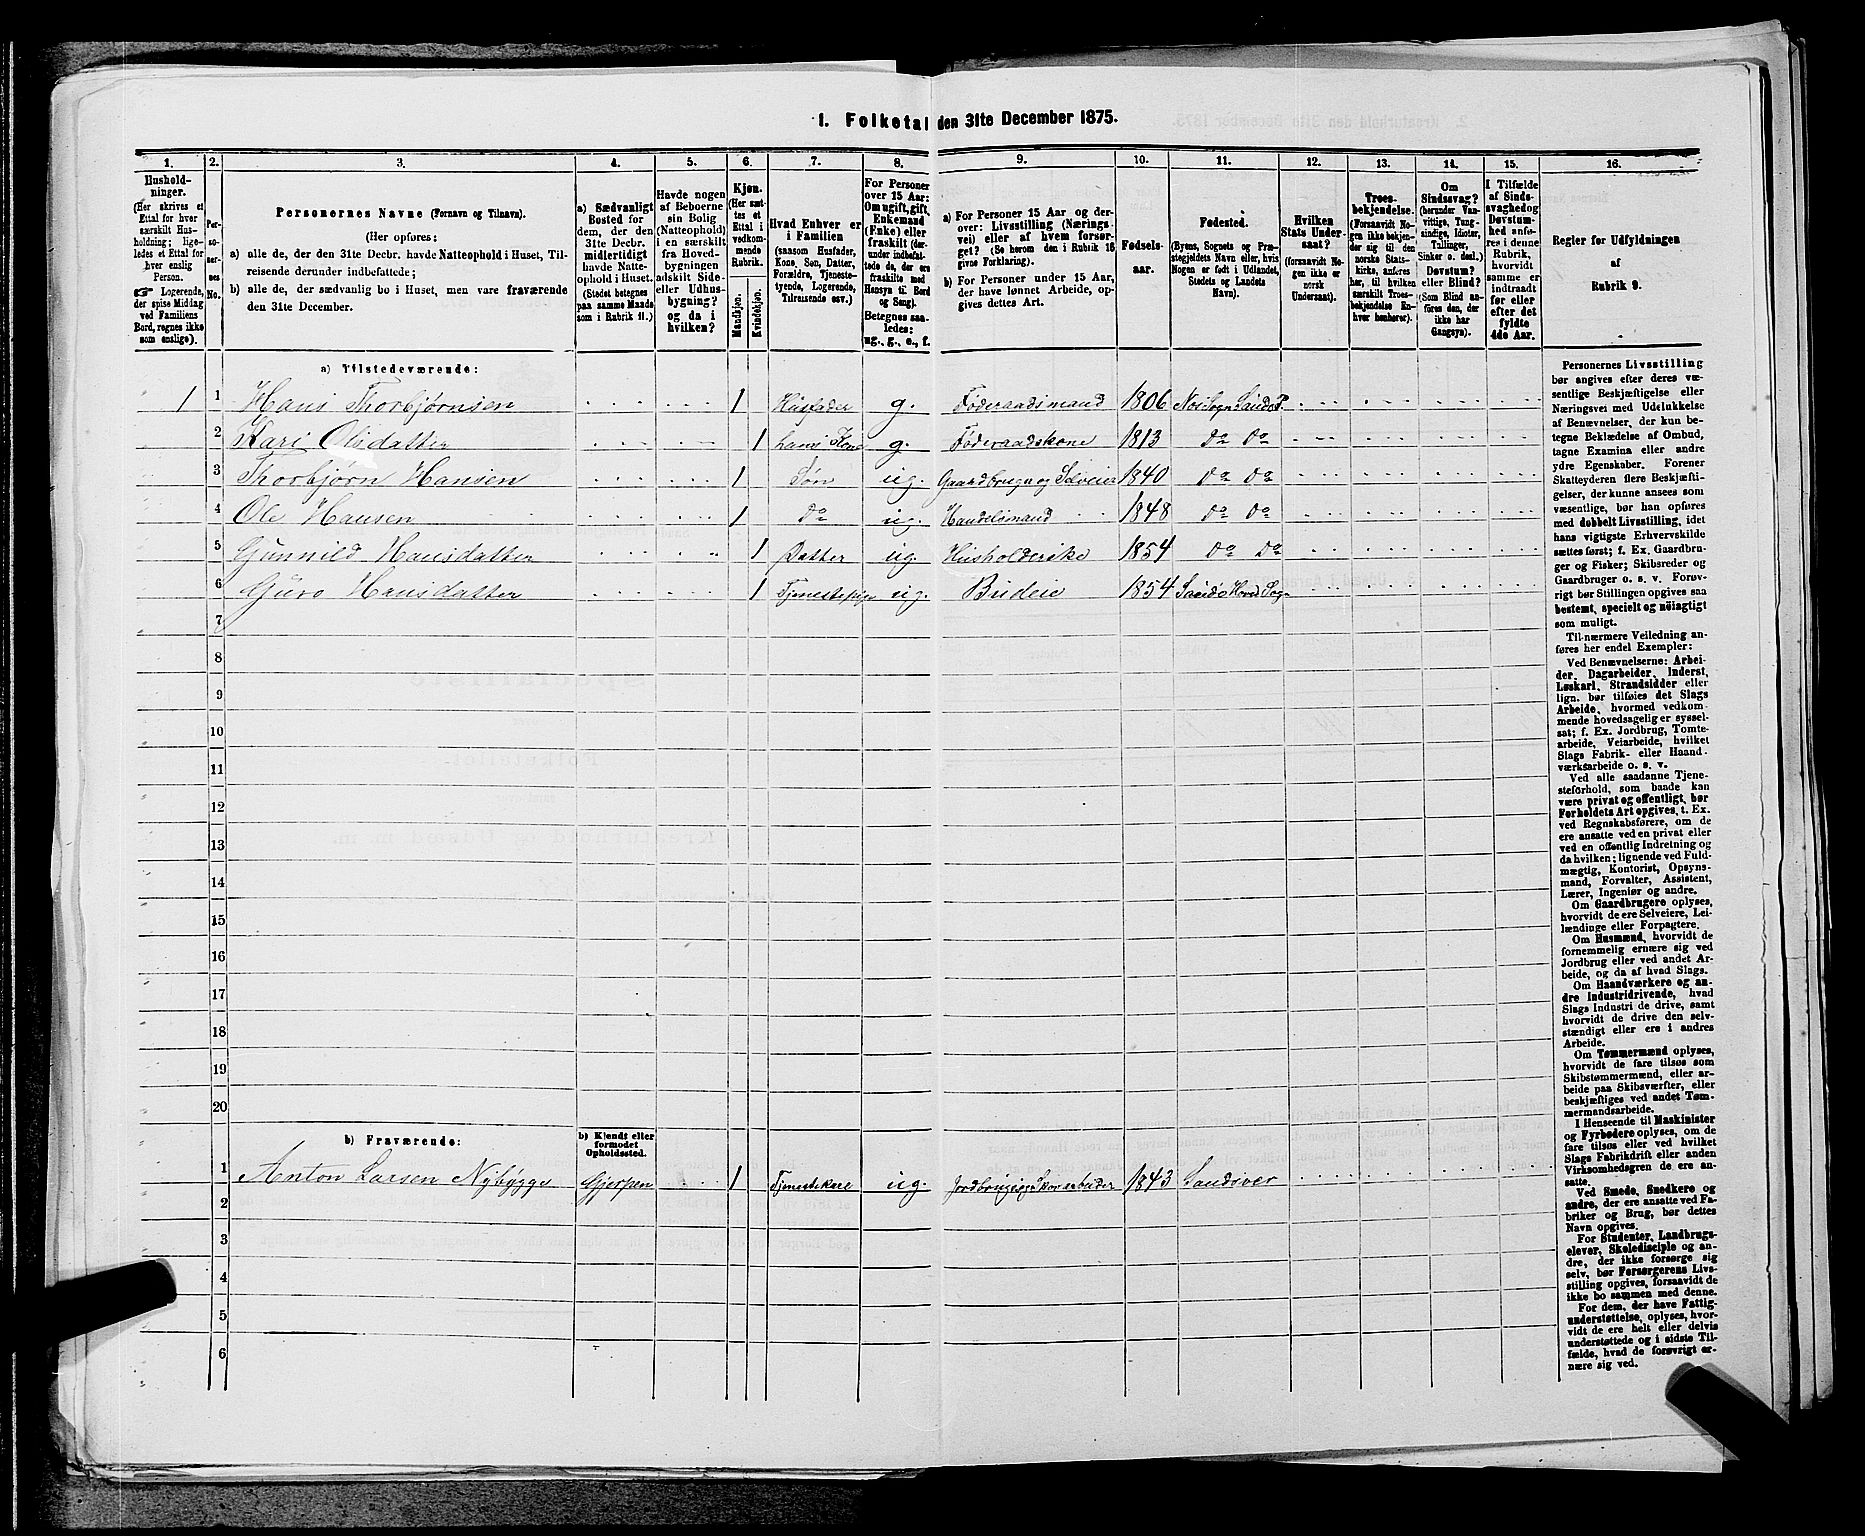 1. Folketal den 31te December 1875.
1. 2. 3. 4. 5. 6. 7. 8. 9. 10. 11. 12. 13. 14. 15. 16.
Hushold-
ninger.
(Her skrives et
Ettal for hver
særskilt Hus-
holdning; lige-
ledes et Ettal for
hver enslig
Person.
☞ Logerende,
der spise Middag
ved Familiens
Bord, regnes ikke
som enslige).
Per-
so-
ner-
nes
No.
Personernes Navne (Fornavn og Tilnavn).
(Her opføres:
a) alle de, der den 31te Decbr. havde Natteophold i Huset, Til-
reisende derunder indbefattede;
b) alle de, der sædvanlig bo i Huset, men vare fraværende
den 31te December.
a) Sædvanligt
Bosted for
dem, der den
31te Decbr.
midlertidigt
havde Natte-
ophold i Huset.
(Stedet betegnes
paa samme Maade
som i Rubrik 11.)
Havde nogen
af Beboerne
sin Bolig
(Natteophold)
i en særskilt
fra Hoved-
bygningen
adskilt Side-
eller Udhus-
bygning?
og da i
hvilken?
Kjøn.
(Her sæt-
tes et
Ettal i
vedkom-
mende
Rubrik.
Mandkjøn.
Kvindekjøn.
Hvad Enhver er
i Familien
(saasom Husfader,
Kone, Søn, Datter,
Forældre, Tjeneste-
tyende, Logerende,
Tilreisende osv.)
For Personer
over 15 Aar:
Om ugift, gift,
Enkemand
(Enke) eller
fraskilt (der-
under indbefat-
tede de, der ere
fraskilte med
Hensyn til Bord
og Seng).
Betegnes saa-
ledes:
ug., g., e., f.
a) For Personer 15 Aar og der-
over: Livsstilling (Nærings-
vei) eller af hvem forsør-
get? (Se herom den i Rubrik 16
givne Forklaring).
b) For Personer under 15 Aar,
der have lønnet Arbeide, op-
gives dettes Art.
Fødsels-
aar.
Fødested.
(Byens, Sognets og Præ-
stegjeldets Navn eller, hvis
Nogen er født i Udlandet,
Stedets og Landets
Navn).
Hvilken
Stats Under-
saat?
(foraavidt No-
gen ikke er
norsk
Undersaat).
Troes-
bekjendelse.
(Forsaavidt No-
gen ikke bekjen-
der sig til den
norske Stats-
kirke, anføres
her, til hvilken
særskilt Troes-
bekjendelse En-
hver henhører).
Om
Sindssvag?
(herunder Van-
vittige, Tung-
sindige, Idioter,
Tullinger,
Sinker o. desl.)
Døvstum?
eller Blind?
(Som Blind an-
føres den, der
ikke har
Gangsyn).
I Tilfælde
af Sinds-
svaghed og
Døvstum-
hed anfø-
res i denne
Rubrik,
hvorvidt
samme er
indtraadt
før eller
efter det
fyldte
4de Aar.
Regler for Udfyldningen
af
Rubrik 9.
a) Tilstedeværende:
1 1 Hans Thorbjørnsen 1 Husfader g. Føderaadsmand 1806
2 Kari Olsdatter 1 Hans Kone g. Føderaadskone 1813 Do Do
3 Thorbjørn Hansen 1 Søn ug. Gaardbruger og Selveier 1840 Do Do
4 Ole Hansen 1 Do ug. Handelsmand 1848 Do Do
5 Gunnild Hansdatter 1 Datter ug. Husholderske 1854 Do Do
6 Guro Hansdatter 1 Tjenestepige ug. Budeie 1854
7
8
9
10
11
12
13
14
15
16
17
18
19
20
b) Fraværende:
b) Kjendt eller
formodet
Opholdssted.
1 Anton Larsen Nybygge Gjerpen 1 Tjenestekarl ug. 1843 Sandsver
2
3
4
5
6
Personernes Livsstilling
bør angives efter deres væ-
sentlige Beskjæftigelse eller
Næringsvei med Udelukkelse
af Benævnelser, der kun be-
tegne Beklædelse af Ombud,
tagne Examina eller andre
ydre Egenskaber. Forener
Skatteyderen flere Beskjæfti-
gelser, der kunne ansees som
væsentlige, bør han opføres
med dobbelt Livsstilling, idet
hans vigtigste Erhvervskilde
sættes først; f. Ex. Gaardbru-
ger og Fisker; Skibsreder og
Gaardbruger o. s. v. Forøv-
rigt bør Stillingen opgives saa
bestemt, specielt og nøiagtigt
som muligt.
Til nærmere Veiledning an-
føres her endel Exempler:
Ved Benævnelserne: Arbei-
der, Dagarbeider, Inderst,
Løskarl, Strandsidder eller
lign. bør tilføies det Slags
Arbeide, hvormed vedkom-
mende hovedsagelig er syssel-
sat; f. Ex. Jordbrug, Tomte-
arbeide, Veiarbeide, hvilket
Slags Fabrik- eller Haand-
værksarbeide o. s. v.
Ved alle saadanne Tjene-
steforhold, som baade kan
være privat og offentligt, bør
Forholdets Art opgives, t. Ex.
ved Regnskabsførere, om de
ere ansatte ved en privat eller
ved en offentlig Indretning og
da hvilken; lignende ved Fuld-
mægtig, Kontorist, Opsyns-
mand, Forvalter, Assistent,
Lærer, Ingeniør og andre.
Om Gaardbrugere oplyses,
hvorvidt de ere Selveiere, Lei-
lændinge eller Forpagtere.
Om Husmænd, hvorvidt de
fornemmelig ernære sig ved
Jordbrug eller ved andet Ar-
beide, og da af hvad Slags.
Om Haandværkere og an-
dre Industridrivende, hvad
Slags Industri de drive, samt
hvorvidt de drive den selv-
stændigt eller ere i andres
Arbeide.
Om Tømmermænd oplyses,
hvorvidt de fare tilsøs som
Skibstømmermænd, eller ar-
beide paa Skibsværfter, eller
beskjæftiges ved andet Tøm-
mermandsarbeide.
I Henseende til Maskinister
og Fyrbødere oplyses, om de
fare tilsøs eller ved hvilket
Slags Fabrikdrift eller anden
Virksomhedsgren de ere an-
satte.
Ved Smede, Snedkere og
andre, der ere ansatte ved Fa-
briker og Brug, bør dettes
Navn opgives.
For Studenter, Landbrugs-
elever, Skoledisciple og an-
dre, der ikke forsørge sig
selv, bør Forsørgerens Livs-
stilling opgives, forsaavidt de
ikke bo sammen med denne.
For dem, der have Fattig-
understøttelse, oplyses, hvor-
vidt de ere helt eller delvis
understøttede og i sidste Til-
fælde, hvad de forøvrigt er-
nære sig ved.